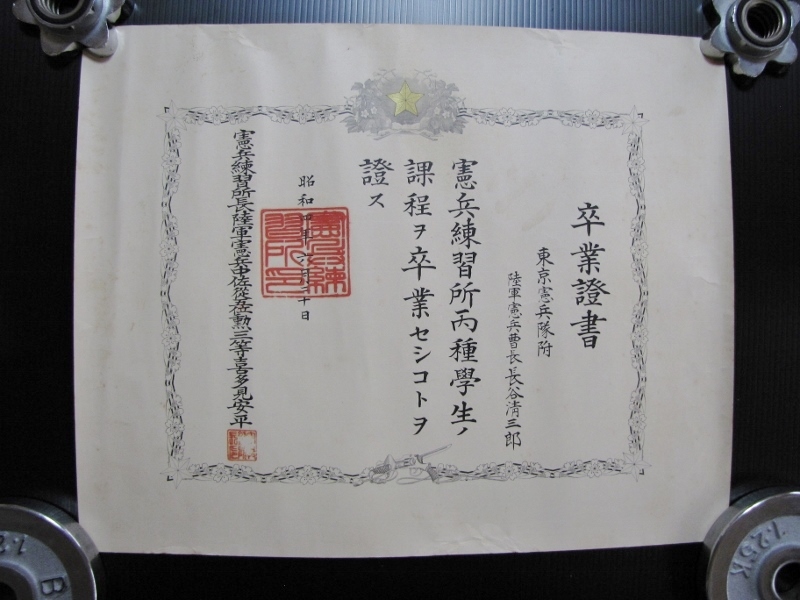 卒業證書
東京憲兵隊附
陸軍憲兵曹長長谷清三郎
憲兵練習所丙種學生ノ
課程ヲ卒業セシコトヲ
證ス
昭和
十日
憲兵練習所長陸軍憲兵中佐從五位勲三等喜多見安平
憲兵練習所印